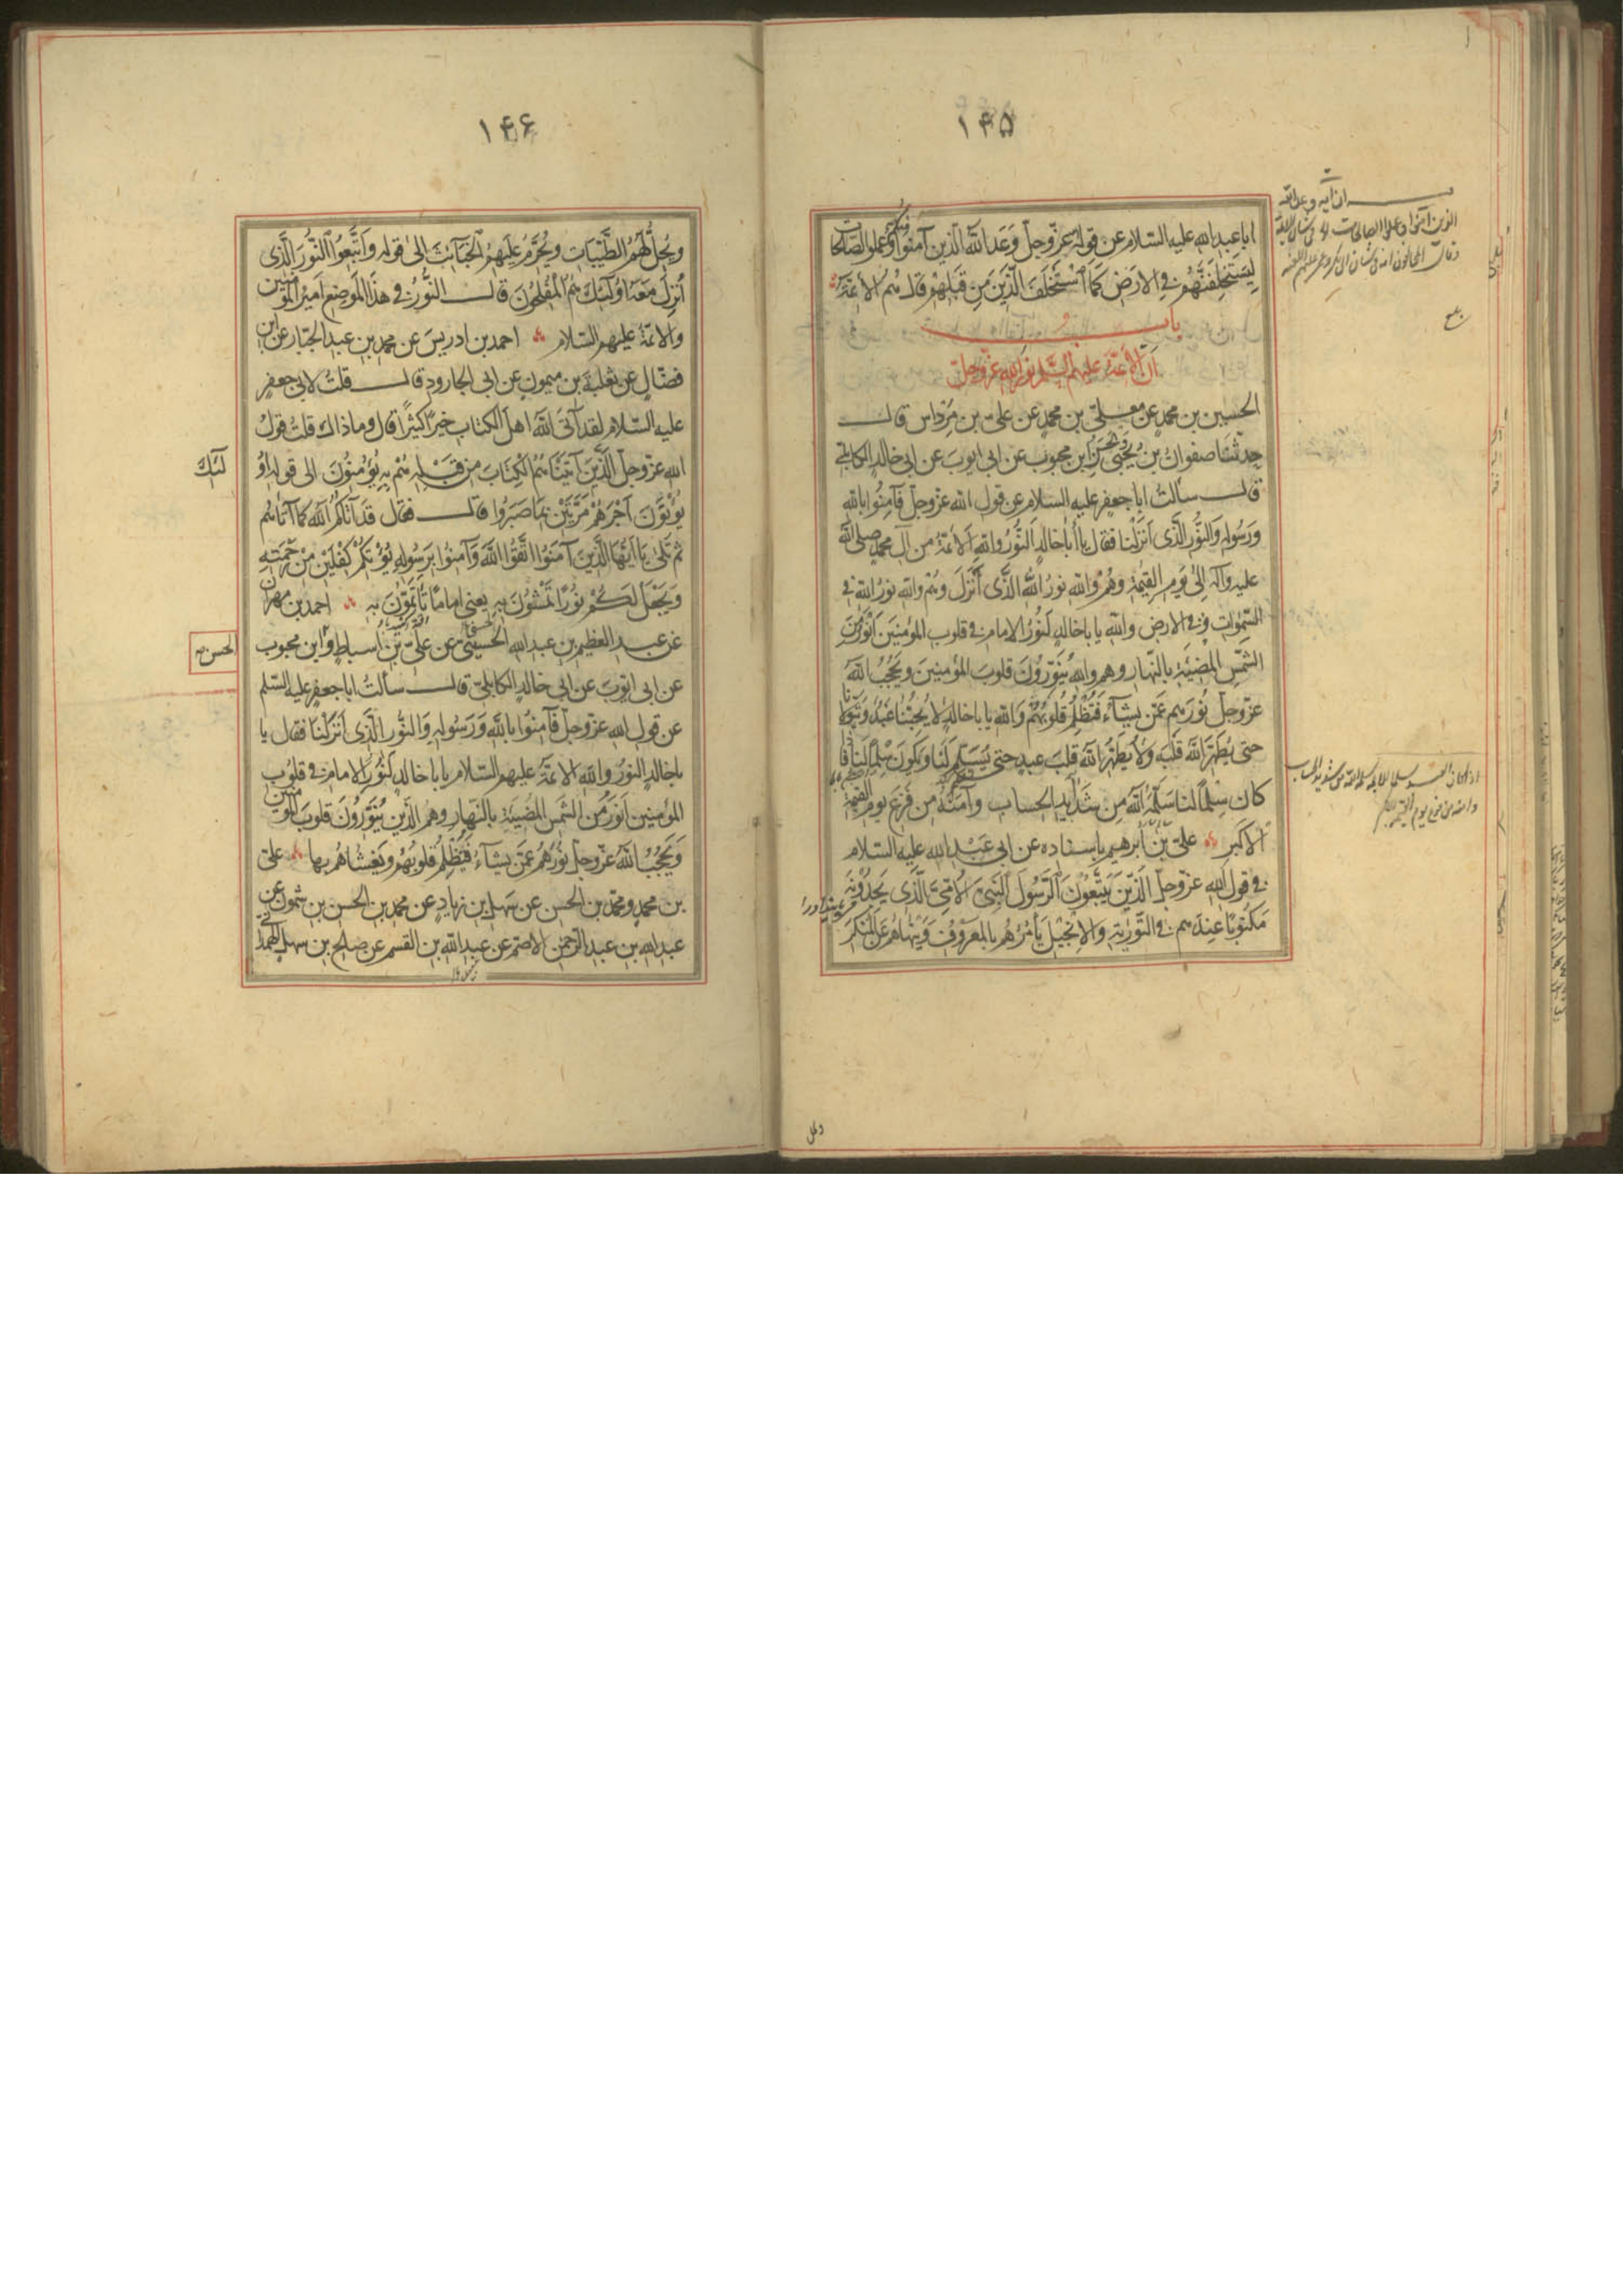 ١٤٥
ابا عبد الله عليه السلام عن قوله عزّ وجلّ وَعَدَ اللّٰهُ الَّذِينَ آمَنُوا مِنكُم وَعَمِلُوا الصَّالِحَاتِ
لَيَسْتَخْلِفَنَّهُمْ فِي الاَرْضِ كَمَا اسْتَخْلَفَ الَّذِينَ مِن قَبْلِهِمْ قال هُمُ الأئمّة
باب
اَنّ الأئمّة عليهم السّلم نور الله عزّ وجلّ
الحسين بن محمد عن معلّى بن محمدٍ عن علىّ بن مِرْداس قال
حدثنا صفوانُ بن يحيى والحسن ابن محبوب عن ابى ايوب عن ابى خالدٍ الكابلىّ
قال سألتُ ابا جعفرٍ عليه السلام عن قول الله عزّ وجلّ فَآمِنُوا بِاللهِ
وَرَسُولِهِ وَالنُّورِ الَّذِى اَنْزَلْنَا فقال يا أبا خالدٍ النُّورُ واللهِ الائمّةُ من آل محمدٍ صلى الله
عليه وآله الى يوم القيٰمة وهُمْ واللهِ نورُ اللهِ الَّذى أَنْزَلَ وهُم والله نورُ اللهِ فى
السّمٰوات وفى الارض والله يا باخالدٍ لَنُورُ الامام فى قلوب المؤمنين اَنْوَرُ مِنَ
الشّمْسِ المُضِيئَةِ بالنّهار وهم واللهِ يُنَوِّرُونَ قلوبَ المؤمنينَ ويَحْجُبُ اللهُ
عزّ وجلّ نُورَهم عَمّن يشآءُ فَتُظْلِمُ قُلُوبُهُمْ وَاللهِ يا باخالدٍ لا يُحِبُّنا عَبْدٌ وَيَتَوَلّانا
حتى يُطَهِّرَ اللهُ قلبَه ولا يُطَهِّرُ اللهُ قلبَ عبدٍ حتى يُسَلِّمَ لَنا ويكونَ سِلْمًا لَنا فاذا
كان سِلْمًا لنا سَلَّمَهُ اللهُ مِن شَدِيد الحساب وآمَنَهُ من فَزَعِ يوم القيمة
الاكبرِ علىّ بن ابرهيم باسناده عن ابى عَبْد الله عليه السلام
فى قول الله عزّ وجلّ الَّذِينَ يَتَّبِعُونَ الرَّسُولَ النَّبِىَّ الاُمِّىَّ الَّذِى يَجِدُونَهُ
مَكْتُوبًا عِنْدَهم فى التَّوْرٰيةِ والاِنْجِيلِ يَأْمُرُهُم بِالمَعْرُوفِ وَيَنْهَاهُمْ عَنِ المُنْكَرِ
بلغ
١٤٦
ويُحِلُّ لَهُمُ الطَّيِّبَاتِ ويُحَرِّمُ عَلَيْهِمُ الخَبَائِثَ الى قوله واتَّبَعُوا النُّورَ الَّذى
اُنْزِلَ مَعَهُ اُولَئِكَ هُمُ الْمُفْلِحُونَ قال النُّورُ فى هذا الموضِع امير المؤمنين
والائمّة عليهم السّلام احمد بن ادريسَ عن محمد بن عبد الجبّار عن ابن
فضّالٍ عن ثعلبة بن ميمونٍ عن ابى الجارود قال قلتُ لابى جعفرٍ
عليه السّلام لقد آتَى اللهُ اهلَ الكتاب خيرًا كثيرًا قال وما ذاك قلت قولُ
الله عزّ وجلّ الَّذِينَ آتَيْنَاهُمُ الكِتَابَ مِن قَبْلِهِ هُمْ بِهِ يُؤْمِنُونَ الى قوله اُو
لَئِكَ
يُؤْتَوْنَ اَجْرَهُمْ مَرَّتَيْنِ بِمَا صَبَرُوا قال فقال قَدْ آتَاكُمُ اللهُ كما آتاهُم
ثم تَلَى يَا اَيُّهَا الَّذِينَ آمَنُوا اتَّقُوا اللهَ وَآمِنُوا بِرَسُولِهِ يُؤْتِكُمْ كِفْلَيْنِ مِنْ رَحْمَتِهِ
وَيَجْعَلْ لَكُمْ نُورًا تَمْشُونَ بِهِ يعنى امامًا تَأْتَمّونَ به احمد بن مهران
عن عبد العظيم بن عبد الله الحسينىّ عن علىّ بن اسباطٍ وابن محبوب
الحسن
عن ابى ايّوبَ عن ابى خالدٍ الكابلىّ قال سألتُ ابا جعفرٍ عليه السّلم
عن قول الله عزّ وجلّ فآمِنُوا باللهِ وَرَسُولِهِ وَالنُّورِ الَّذِى اَنْزَلْنَا فقال يا
باخالدٍ النورُ واللهِ الائمّةُ عليهم السّلام يا باخالدٍ لَنُورُ الامام فى قلوب
المؤمنين اَنْوَرُ مِنَ الشَّمسِ المُضِيئَةِ بالنّهارِ وهُم الّذين يُنَوِّرُونَ قلوبَ المؤمنين
وَيَحْجُبُ اللهُ عزّ وجلّ نُورَهُمْ عَمّن يشآءُ فَتُظْلِمُ قلوبُهُم ويَغشاهُم بها علىّ
بن محمدٍ ومحمّد بن الحسن عن سَهل بن زيادٍ عن محمد بن الحسن بن شمون عن
عبد الله بن عبد الرّحمٰن الاصمّ عن عبد الله بن القسم عن صالح بن سهلٍ الهمدانى